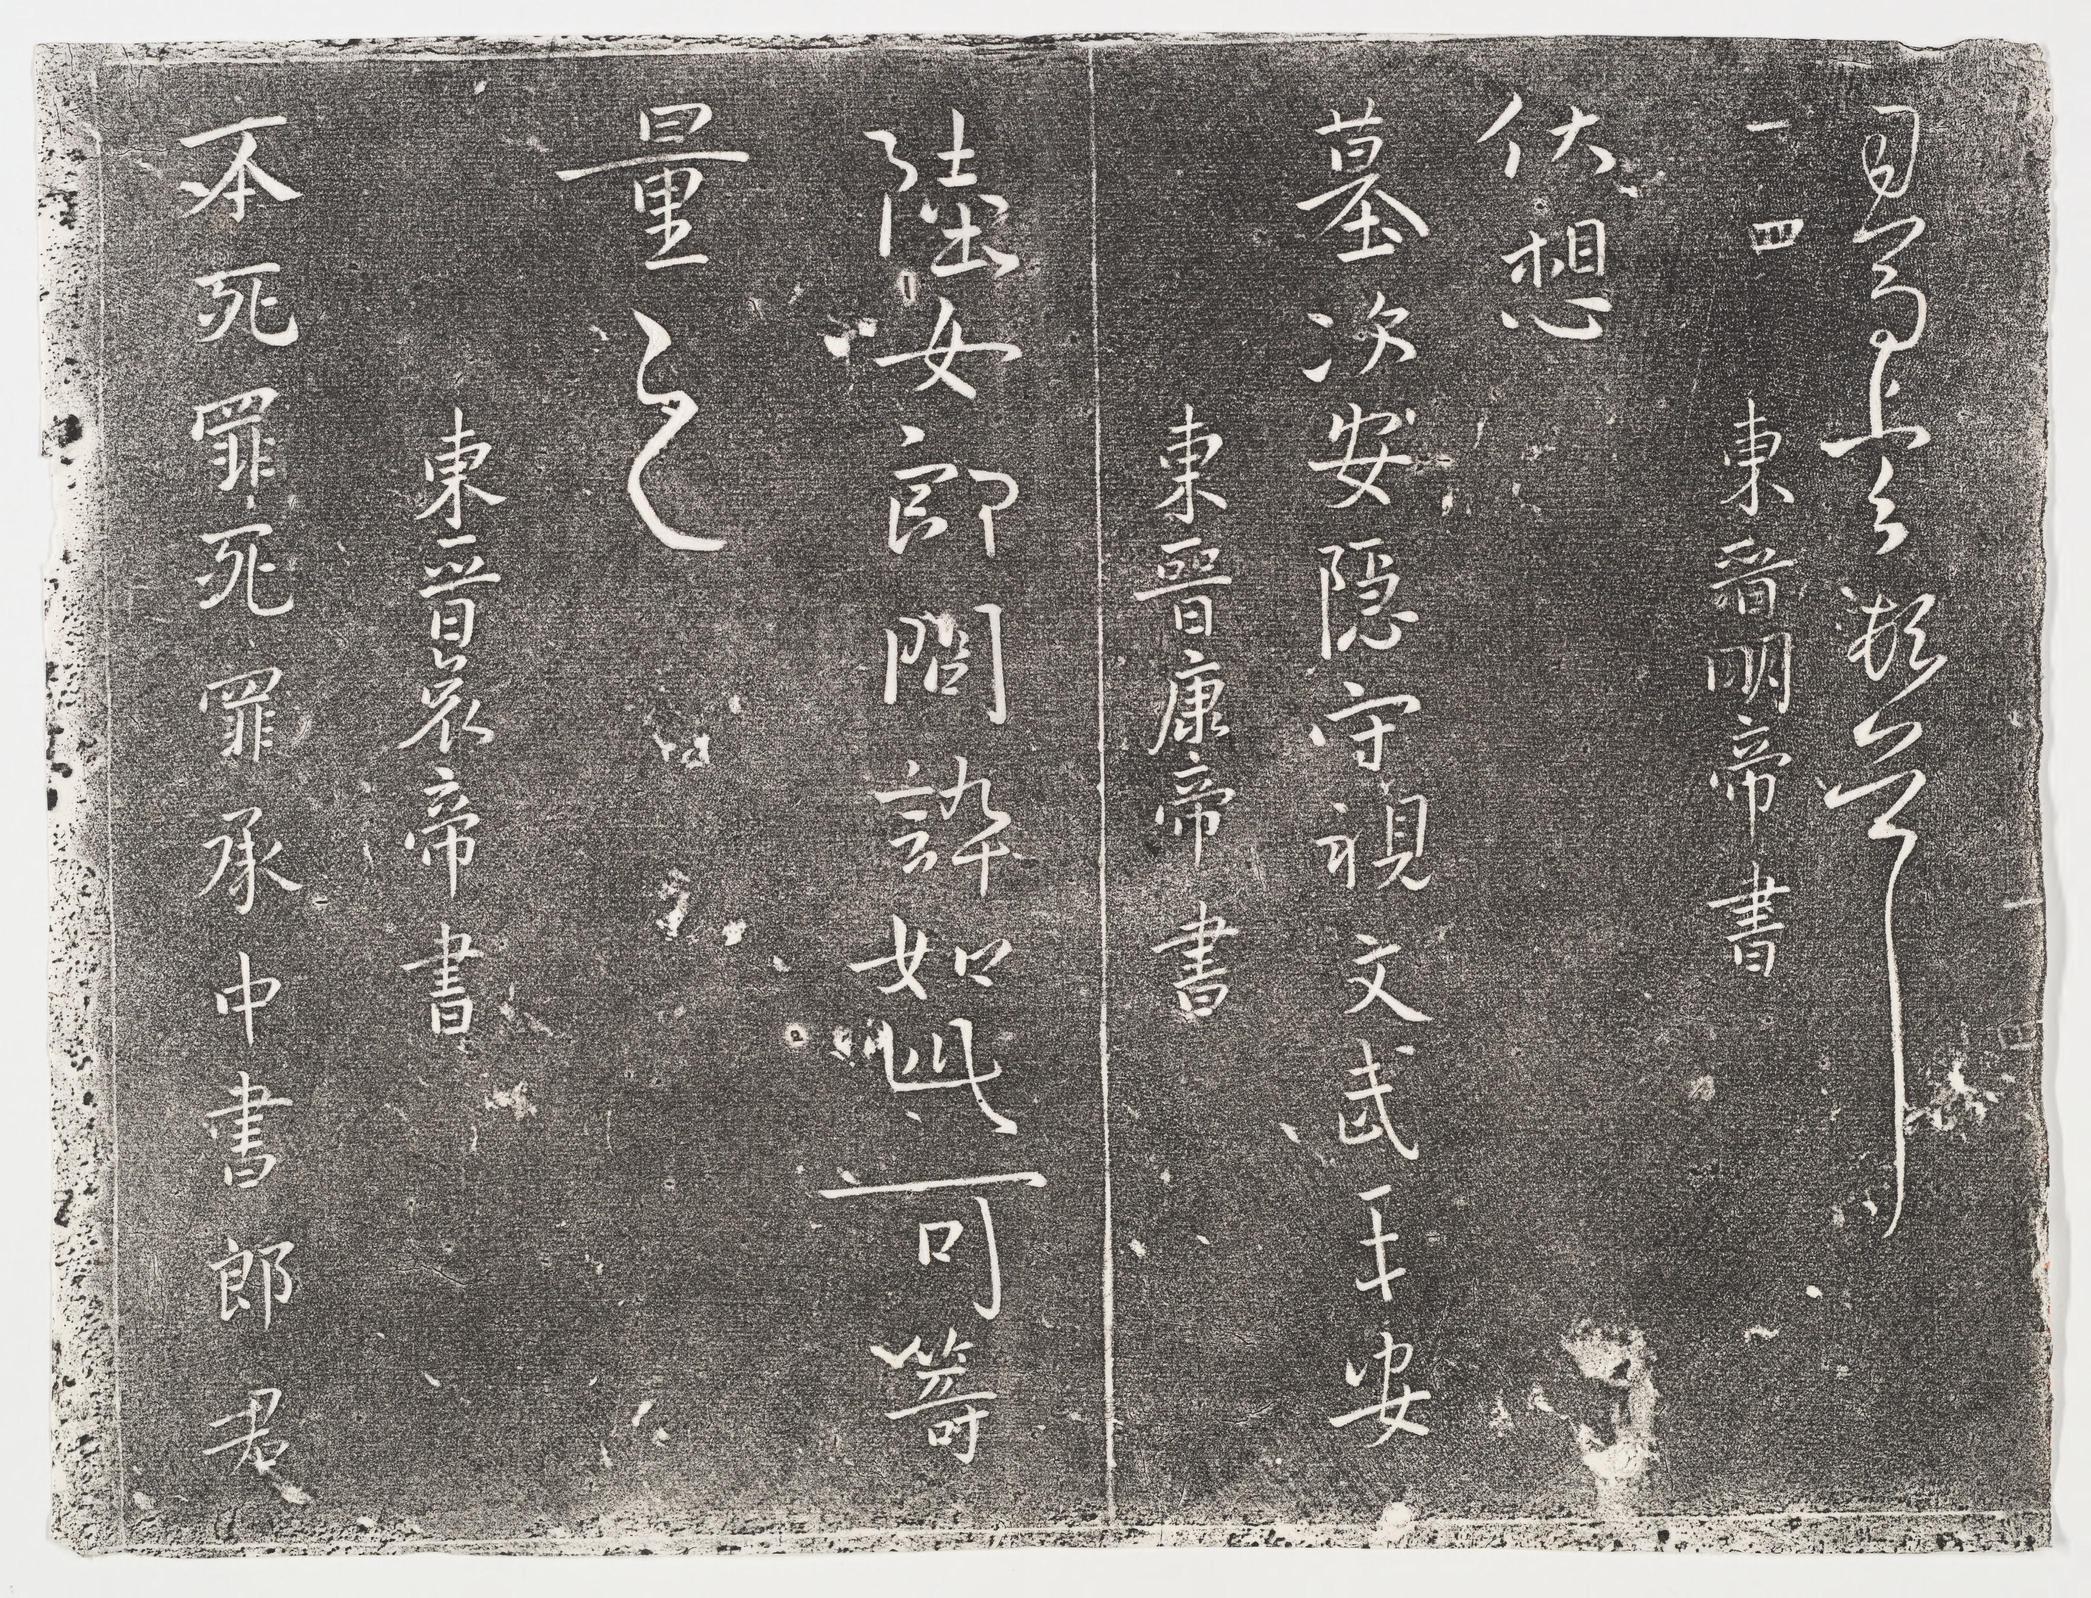 一 四 東晉明帝書
伏想
墓次安隱守視文武平安
東晉康帝書
陸女郎問誶如此可籌
量之
東晉哀帝書
丕死罪死罪承中書郎君